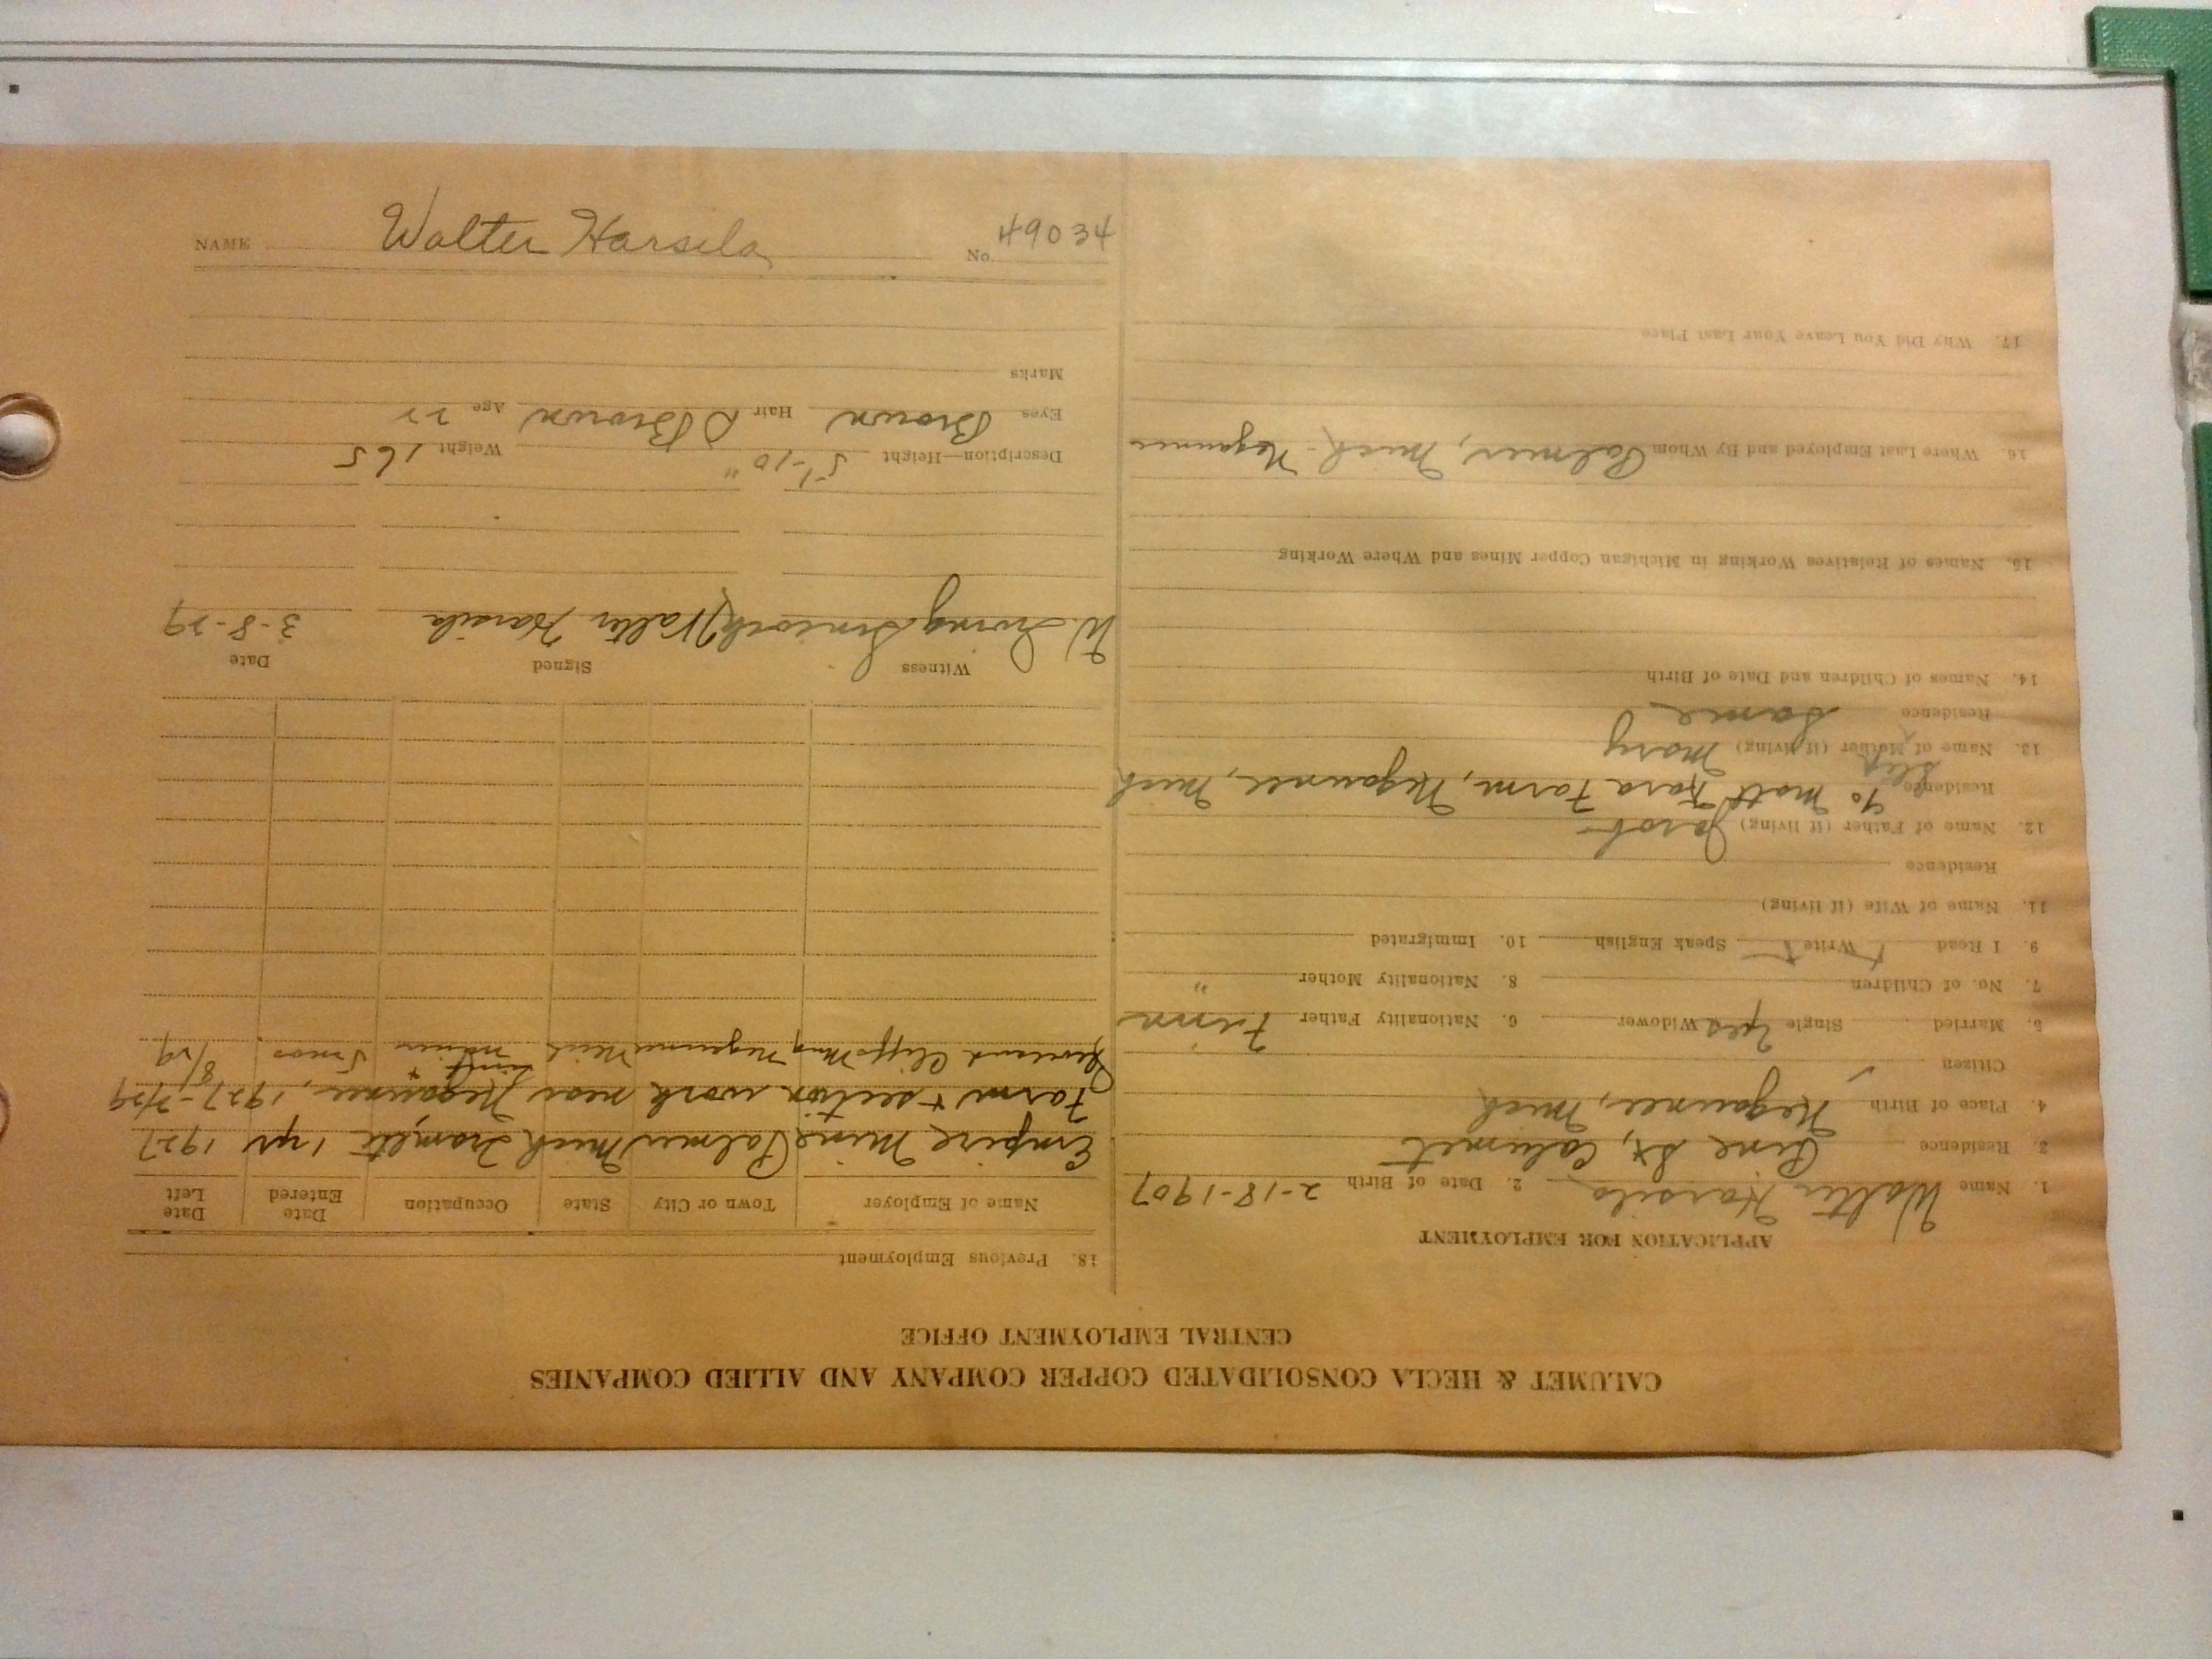 CALUMET & HECLA CONSOLIDATED COPPER COMPANY AND ALLIED COMPANIES
CENTRAL EMPLOYMENT OFFICE
APPLICATION FOR EMPLOYMENT
1. Name Walter Harsila 2. Date of Birth 2-18-1907
3. Residence Pine St, Calumet
4. Place of Birth Negaunee, Mich
Citizen
5. Married Single Yes Widower 6. Nationality Father Finn
7. No. of Children 8. Nationality Mother "
9. I Read Write Speak English 10. Immigrated
11. Name of Wife (if living)
Residence
12. Name of Father (if living) Jacob
Residence % Matt Farm, Negaunee, Mich
13. Name of Step Mother (if living) Mary
Residence Same
14. Names of Children and Date of Birth
15. Names of Relatives Working in Michigan Copper Mines and Where Working
16. Where Last Employed and By Whom Palmer, Mich - Negaunee
17. Why Did You Leave Your Last Place
18. Previous Employment
Name of Employer Town or City State Occupation Date Entered Date Left
Empire Mine Palmer Mich 1 yr 1927
Farm + section work near Negaunee, 1927-
Cliffs Negaunee Mich miner 5 mos 8/29
Witness Signed Date
W. Irving Walter Harsila 3-8-29
Description—Height 5'-10" Weight 165
Eyes Brown Hair D Brown Age 22
Marks
NAME Walter Harsila No. 49034